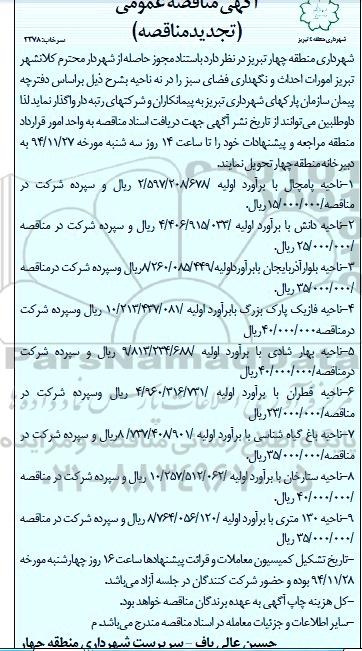 آگهی مناقصه عمومی
(تجدیدمناقصه)
شهرداری منطقه ۴ تبریز
سرخاب: ۲۲۷۸
شهرداری منطقه چهار تبریز در نظر دارد باستناد مجوز حاصله از شهردار محترم کلانشهر
تبریز امورات احداث و نگهداری فضای سبز را در نه ناحیه بشرح ذیل براساس دفترچه
پیمان سازمان پارکهای شهرداری تبریز به پیمانکاران و شرکتهای رتبه دار واگذار نماید لذا
داوطلبین می‌توانند از تاریخ نشر آگهی جهت دریافت اسناد مناقصه به واحد امور قرارداد
منطقه مراجعه و پیشنهادات خود را تا ساعت ۱۴ روز سه شنبه مورخه ۹۴/۱۱/۲۷ به
دبیرخانه منطقه چهار تحویل نمایند.
۱–ناحیه بامجال با برآورد اولیه /۲/۵۹۷/۲۰۸/۶۷۸ ریال و سپرده شرکت در
مناقصه/۱۵/۰۰۰/۰۰۰ریال.
۲–ناحیه دانش با برآورد اولیه /۴/۴۰۶/۹۱۵/۰۳۳ ریال و سپرده شرکت در مناقصه
/۲۵/۰۰۰/۰۰۰ ریال.
۳–ناحیه بلوارآذربایجان بابرآورداولیه/۸/۲۶۰/۰۸۵/۴۴۹ریال وسپرده شرکت درمناقصه
/۳۵/۰۰۰/۰۰۰ ریال.
۴–ناحیه فازیک پارک بزرگ بابرآورد اولیه /۱۰/۲۱۳/۴۳۷/۰۸۱ ریال وسپرده شرکت
درمناقصه۴۰/۰۰۰/۰۰۰ریال
۵–ناحیه بهار شادی با برآورد اولیه /۹/۸۱۳/۲۳۴/۶۸۸ ریال و سپرده شرکت
درمناقصه/۴۰/۰۰۰/۰۰۰ریال
۶–ناحیه قطران با برآورد اولیه /۴/۹۶۰/۳۱۶/۷۳۱ ریال وسپرده شرکت در
مناقصه/۲۳/۰۰۰/۰۰۰ریال
۷–ناحیه باغ گیاه شناسی با برآورد اولیه /۸/۷۳۷/۴۰۸/۹۰۱ریال و سپرده شرکت در
مناقصه/۳۵/۰۰۰/۰۰۰ریال.
۸–ناحیه ستارخان با برآورد اولیه /۱۰/۲۵۷/۵۱۲/۰۶۲ ریال و سپرده شرکت در مناقصه
/۴۰/۰۰۰/۰۰۰ ریال.
۹–ناحیه ۱۳۰ متری با برآورد اولیه /۸/۷۶۴/۰۵۶/۱۲۰ ریال و سپرده شرکت در مناقصه
/۳۵/۰۰۰/۰۰۰ ریال
–تاریخ تشکیل کمیسیون معاملات و قرائت پیشنهادها ساعت ۱۶ روز چهارشنبه مورخه
۹۴/۱۱/۲۸ بوده و حضور شرکت کنندگان در جلسه آزاد می‌باشد.
–کل هزینه چاپ آگهی به عهده برندگان مناقصه خواهد بود.
–سایر اطلاعات و جزئیات معامله در اسناد مناقصه مندرج می‌باشد. م
حسین عالی باف – سرپرست شهرداری منطقه چهار
ParsNamadData